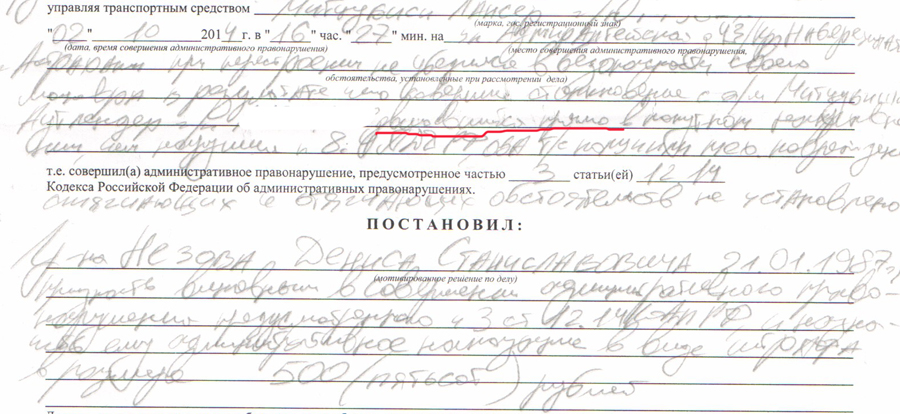 управляя транспортным средством Митцубиси Лансер
(марка, гос. регистрационный знак)
"02" 10 2014 г. в "16" час. "27" мин. на
(дата, время совершения административного правонарушения) (место совершения административного правонарушения,
при перестроении не убедился в безопасности своего
обстоятельства, установленные при рассмотрении дела)
маневра в результате чего совершил столкновение с а/м Митцубиши
Аутлендер прямо в попутном
чем нарушил п 8. ПДД РФ оба т/с получили мех повреждения
т.е. совершил(а) административное правонарушение, предусмотренное частью 3 статьи(ей) 12 14
Кодекса Российской Федерации об административных правонарушениях.
отягчающих обстоятельств не установлено
ПОСТАНОВИЛ:
Гр-на Незова Дениса Станиславовича 21.01.1987 г
(мотивированное решение по делу)
признать виновным в совершении административного право-
нарушения предусмотренного ч 3 ст 12.14 КоАП РФ и назна-
чить ему административное наказание в виде штрафа
в размере 500 (пятьсот) рублей